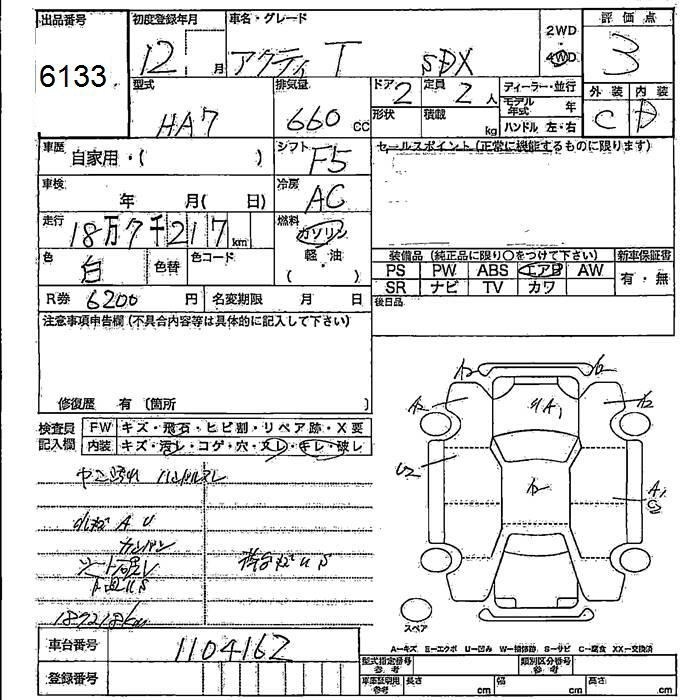 出品番号 初度登録年月 車名・グレード 2WD 評価点
6133 12 月 アクティ T SDX 4WD 3
型式 排気量 ドア 定員 ディーラー・並行 外装 内装
HA7 660 CC 2 2 人 モデル年式 年 C D
形状 積載 kg ハンドル 左・右
車歴 自家用・( ) シフト F5 セールスポイント (正常に機能するものに限ります)
車検 年 月( 日) 冷房 AC
走行 18万7千217 km 燃料 ガソリン
軽・油
( )
色 白 色替 色コード 装備品 (純正品に限り○をつけて下さい) 新車保証書
PS PW ABS エアB AW 有・無
SR ナビ TV カワ
R券 6200 円 名変期限 月 日 後日品
注意事項申告欄 (不具合内容等は具体的に記入して下さい)
修復歴 有 (箇所 )
検査員 FW キズ・飛石・ヒビ割・リペア跡・X要
記入欄 内装 キズ・汚レ・コゲ・穴・スレ・キレ・破レ
ハンドルスレ
A U
カンバン
シート
187218km
A2 A2 A1 A2 U2 A1
スペア
A−キズ E−エクボ U−凹み W−補修跡 S−サビ C−腐食 XX−交換済
車台番号 1104162
型式指定番号 参考 類別区分番号 参考
登録番号 車庫証明用 参考 長さ cm 幅 cm 高さ cm